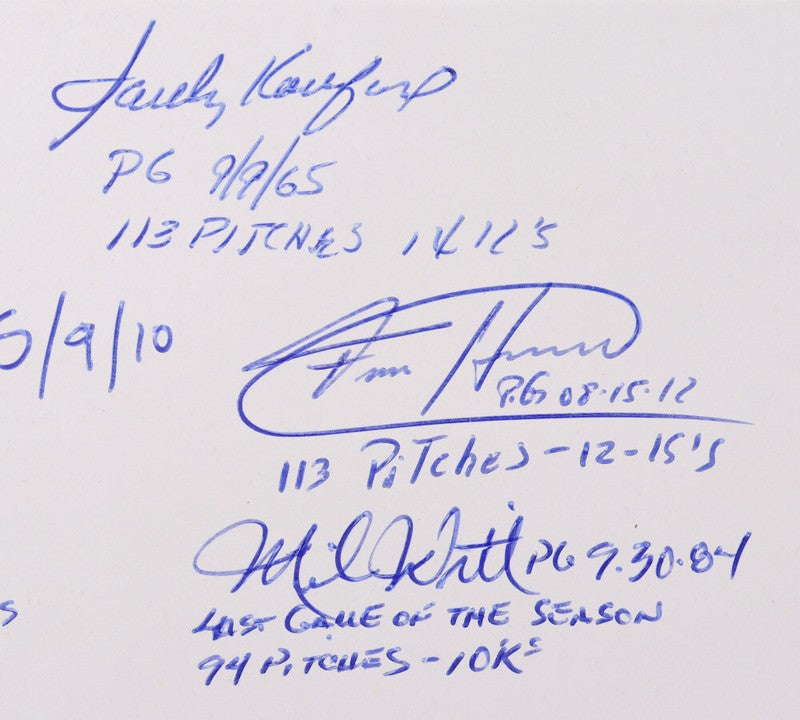 Sandy Koufax
PG 9/9/65
113 PITCHES 14 K'S
5/9/10
PG 08·15·12
113 PiTches - 12 - K'S
Mike Witt PG 9.30.84
LAST GAME OF THE SEASON
94 PITCHES - 10 K'S
s